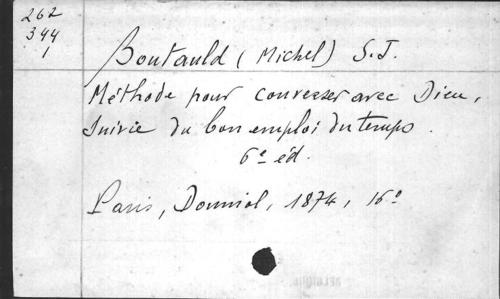 262
344
1
Boutauld (Michel) S.J.
Méthode pour converser avec Dieu,
suivie du bon emploi du temps.
6e éd.
Paris, Douniol, 1874, 16°